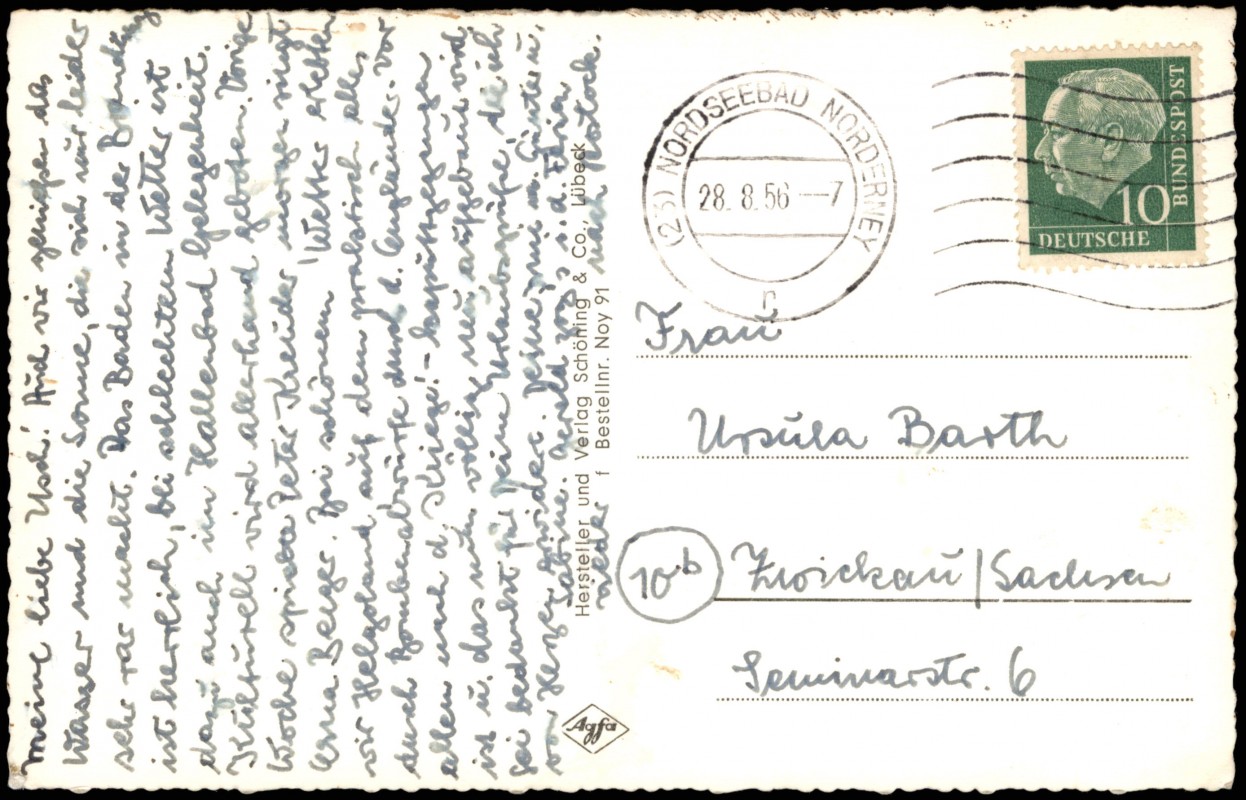 Meine liebe Usch! Auch wir genießen das
Wasser und die Sonne, die sich nur leider
sehr rar macht. Das Baden in der Brandung
ist herrlich, bei schlechtem Wetter ist
dazu auch im Hallenbad Gelegenheit.
Kulturell wird allerhand geboten. Vorige
Woche spielte Peter Kreuder, morgen singt
Erna Berger. Bei schönem Wetter erlebten
wir Helgoland auf dem praktisch alles
durch Bombenabwürfe durch d. Engländer vor
allem nach d. Kriege!- kaputtgegangen
ist u. das nun völlig neu aufgebaut wird.
Sei bedankt für Deine Urlaubsgrüße, die ich
von Herzen erwidert. Deine Günter u.
Sabine. Gerald zog i. d. Ferien
wieder nach Rostock.
Hersteller und Verlag Schöning & Co., Lübeck
f Bestellnr. Noy 91
Agfa
(23) NORDSEEBAD NORDERNEY
28. 8. 56 —7
n
DEUTSCHE
BUNDESPOST
10
Frau
Ursula Barth
10b Zwickau/Sachsen
Seminarstr. 6